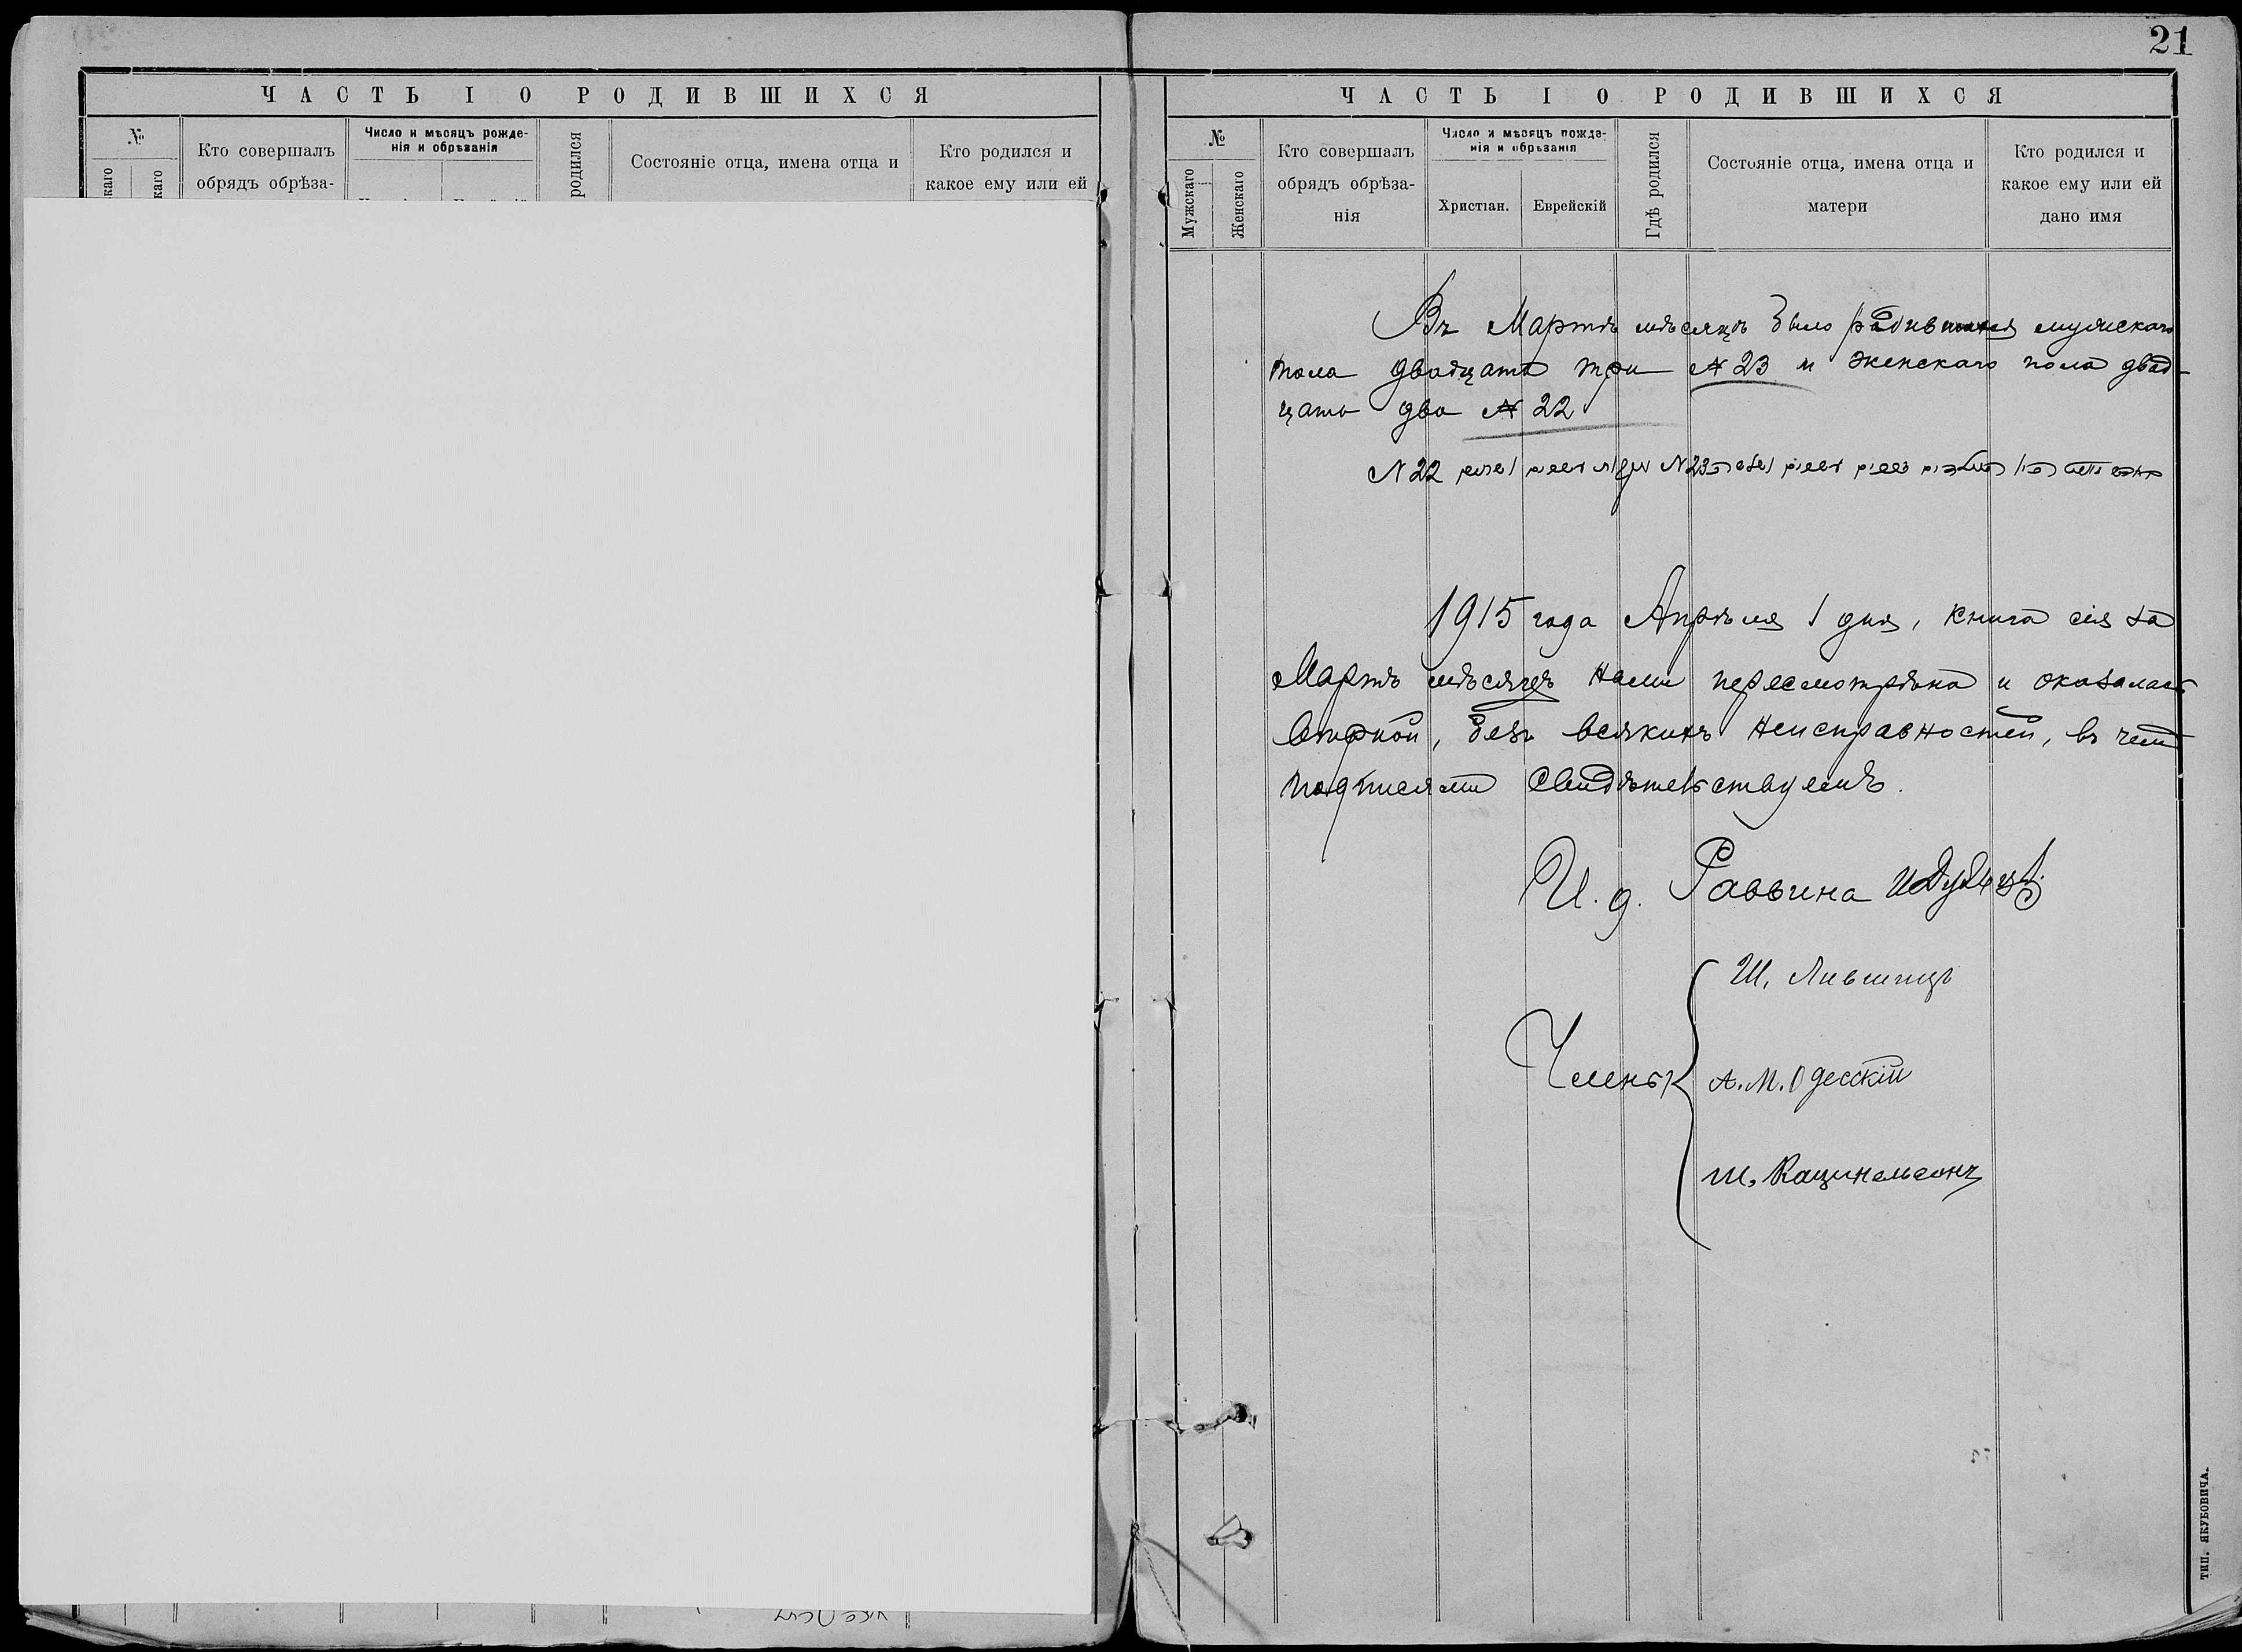 21
ЧАСТЬ I О РОДИВШИХСЯ
№
каго
каго
Кто совершалъ
обрядъ обрѣза-
Число и мѣсяцъ рожде-
нія и обрѣзанія
родился
Состояніе отца, имена отца и
Кто родился и
какое ему или ей
ЧАСТЬ I О РОДИВШИХСЯ
№
Мужскаго
Женскаго
Кто совершалъ
обрядъ обрѣза-
нія
Число и мѣсяцъ рожде-
нія и обрѣзанія
Христіан.
Еврейскій
Гдѣ родился
Состояніе отца, имена отца и
матери
Кто родился и
какое ему или ей
дано имя
Въ Мартѣ мѣсяцѣ было родившихся мужскаго
пола двадцать три № 23 и женскаго пола двад-
цать два № 22
N 22 N 23
1915 года Апрѣля 1 дня, книга сія за
Мартъ мѣсяцъ нами пересмотрѣна и оказалась
вѣрной, безъ всякихъ неисправностей, въ чемъ
подписями свидѣтельствуемъ.
И. д. Раввина
Члены
Ш. Лившицъ
А. М. Одесскій
Ш. Каценельсонъ
ТИП. ЯКУБОВИЧА.